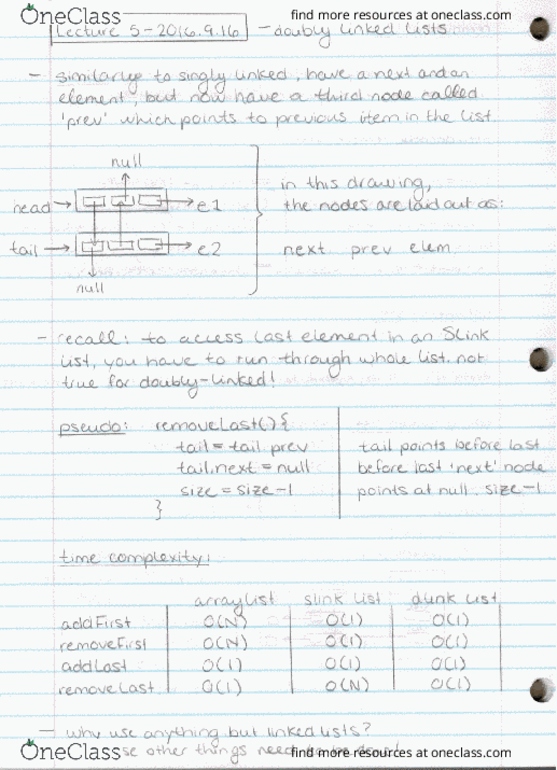 OneClass
find more resources at oneclass.com
Lecture 5 - 2016.9.16 - doubly linked lists
- similarly to singly linked, have a next and an
element, but now have a third node called
'prev' which points to previous item in the list.
null
head → → e1
tail → → e2
null
in this drawing,
the nodes are laid out as:
next prev elem
- recall: to access last element in an Slink
list, you have to run through whole list. not
true for doubly-linked!
pseudo: removeLast() {
tail = tail.prev
tail.next = null
size = size-1
}
tail points before last
before last 'next' node
points at null. size-1
time complexity:
arraylist slink list dlink list
addFirst O(N) O(1) O(1)
removeFirst O(N) O(1) O(1)
addLast O(1) O(1) O(1)
removeLast O(1) O(N) O(1)
- why use anything but linked lists?
OneClass
se other things need
find more resources at oneclass.com